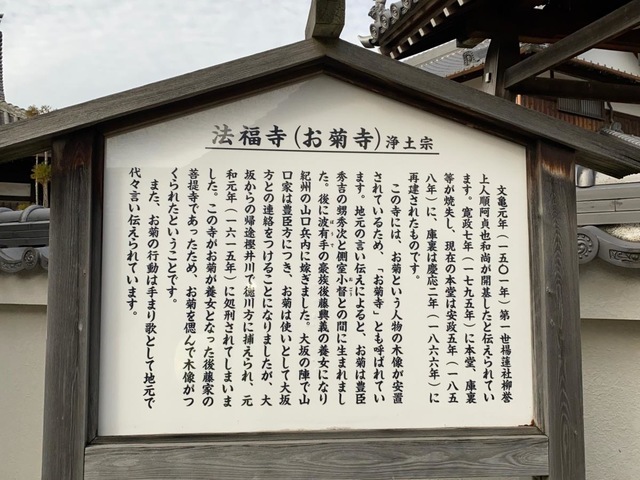 法福寺(お菊寺)浄土宗
文亀元年(一五〇一年)第一世楊蓮社柳誉
上人順阿貞也和尚が開基したと伝えられてい
ます。寛政七年(一七九五年)に本堂、庫裏
等が焼失し、現在の本堂は安政五年(一八五
八年)に、庫裏は慶応二年(一八六六年)に
再建されたものです。
この寺には、お菊という人物の木像が安置
されているため、「お菊寺」とも呼ばれてい
ます。地元の言い伝えによると、お菊は豊臣
秀吉の甥秀次と側室小督との間に生まれまし
た。後に波有手の豪族後藤興義の養女になり
紀州の山口兵内に嫁ぎました。大坂の陣で山
口家は豊臣方につき、お菊は使いとして大坂
方との連絡をつけることになりましたが、大
坂からの帰途樫井川で徳川方に捕えられ、元
和元年(一六一五年)に処刑されてしまいま
した。この寺がお菊が養女となった後藤家の
菩提寺であったため、お菊を偲んで木像がつ
くられたということです。
また、お菊の行動は手まり歌として地元で
代々言い伝えられています。